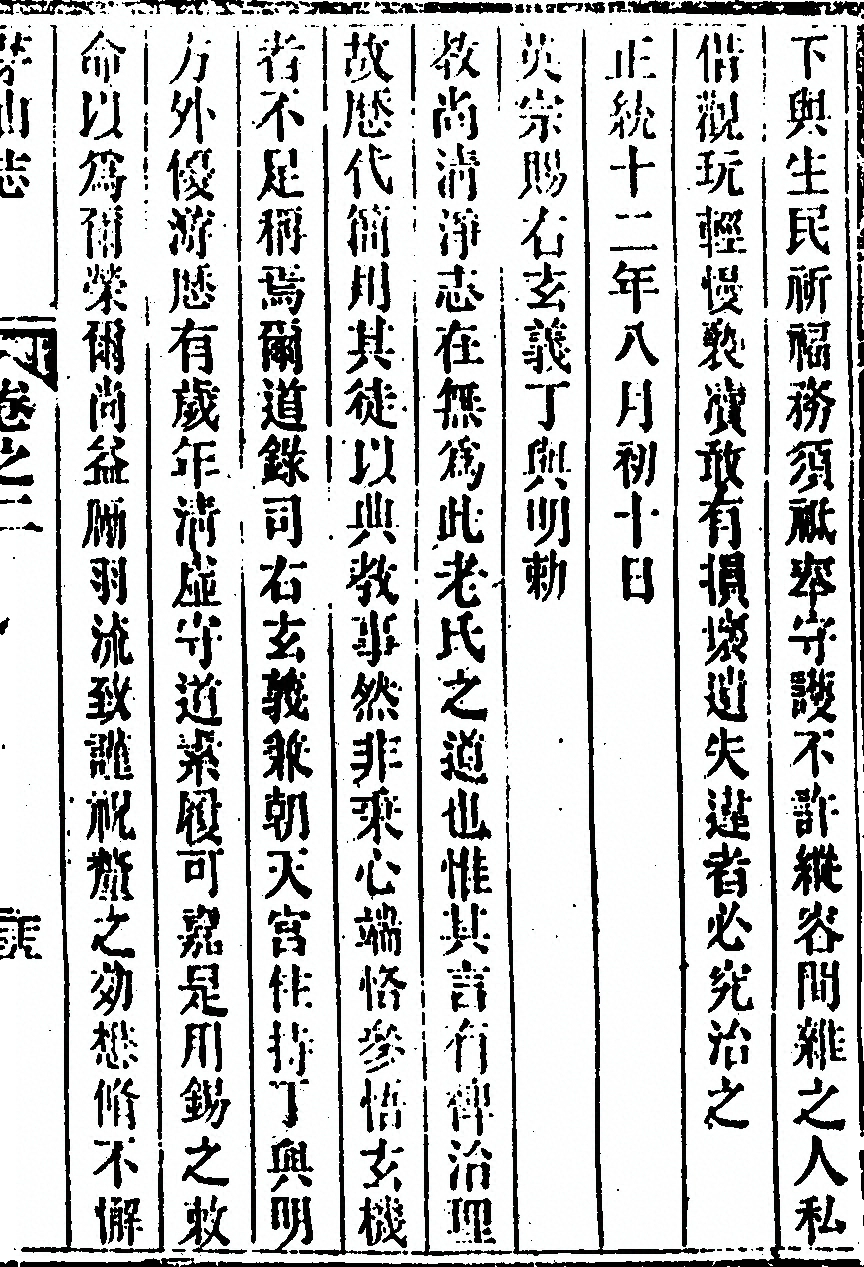 下與生民祈福務須祗奉守護不許縱容間雜之人私
借觀玩輕慢褻瀆敢有損壞遺失違者必究治之
正統十二年八月初十日
英宗賜右玄義丁與明勅
教尚清淨志在無為此老氏之道也惟其言有裨治理
故歷代簡用其徒以典教事然非秉心端恪參悟玄機
者不足稱焉爾道錄司右玄義兼朝天宮住持丁與明
方外優游歷有歲年清虛守道素履可嘉是用錫之敕
命以為爾榮爾尚益勵羽流致謹祝釐之効懋脩不懈
茅山志
卷之二